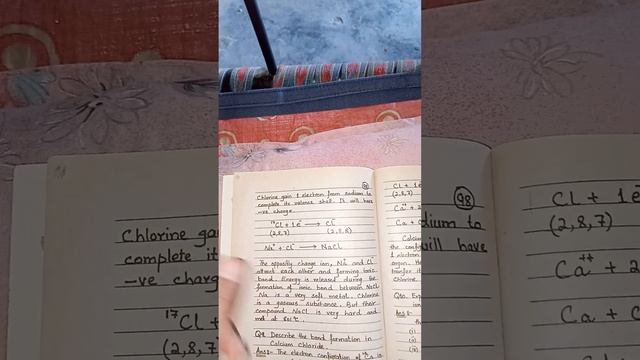 98
Chlorine gain 1 electron from sodium to
complete its valence shell. It will have
-ve charge.
17Cl + 1e⁻ ⟶ Cl⁻
(2,8,7) (2,8,8)
Na⁺ + Cl⁻ ⟶ NaCl
The oppositly charge ion, Na⁺ and Cl⁻
attract each other and forming ionic
bond. Energy is released during the
formation of ionic bond between NaCl
Na is a very soft metal. Chlorine
is a gaseous substance. But their
compound NaCl is very hard and
melt at 801°C.
Q9. Describe the bond formation in
Calcium Chloride.
Ans:- The electron configuration of Ca is
Cl + 1e
(2,8,7)
Ca⁺⁺ + 2
Ca + C
Calciu
the con
1 electron
transfer
Chlorine.
Q10. Exp
Ans:-
(i)
(ii)
(iii)
Chlorine gai
complete it
-ve charg
17Cl +
(2,8,7)
98
dium to
will have
Cl + 1e
(2,8,7)
Ca⁺⁺ + 2
Ca + C